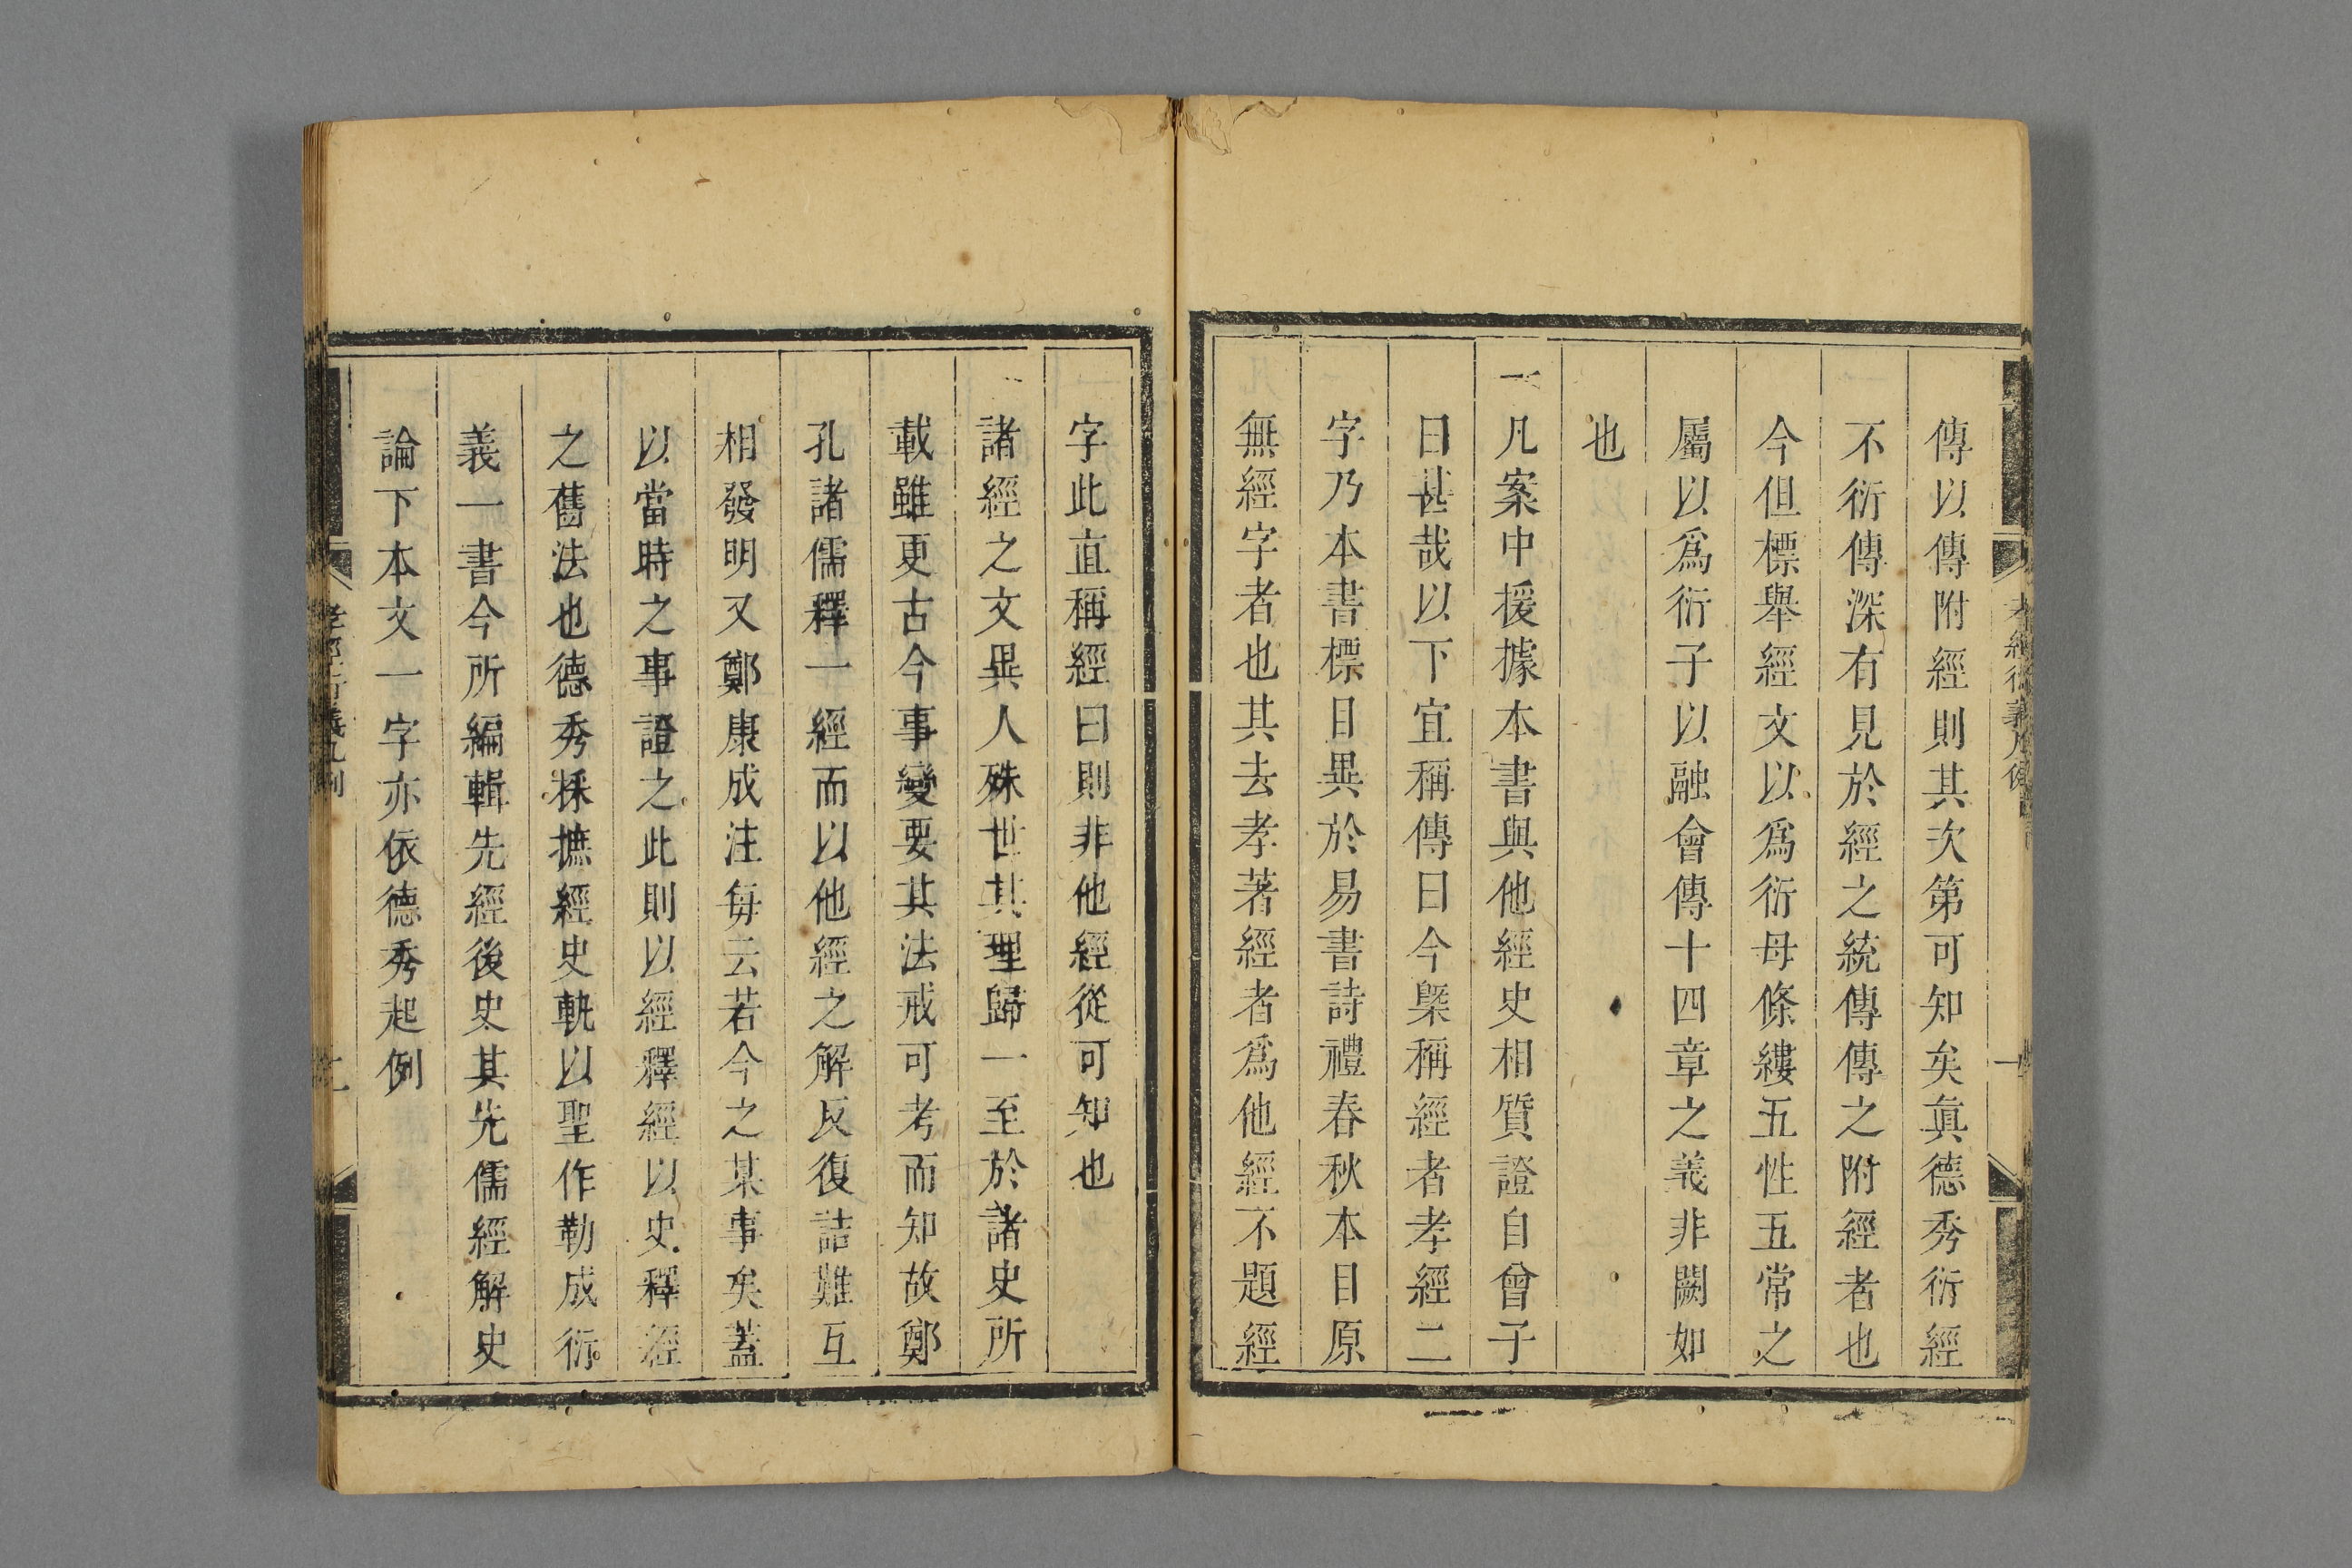 傳以傳附經則其次第可知矣眞德秀衍經
不衍傳深有見於經之統傳傳之附經者也
今但標舉經文以爲衍母條縷五性五常之
屬以爲衍子以融會傳十四章之義非闕如
也
一凡案中援據本書與他經史相質證自曾子
曰甚哉以下宜稱傳曰今槩稱經者孝經二
字乃本書標目異於易書詩禮春秋本目原
無經字者也其去孝著經者爲他經不題經
字此直稱經曰則非他經從可知也
一諸經之文異人殊世其理歸一至於諸史所
載雖更古今事變要其法戒可考而知故鄭
孔諸儒釋一經而以他經之解反復詰難互
相發明又鄭康成注每云若今之某事矣蓋
以當時之事證之此則以經釋經以史釋經
之舊法也德秀採摭經史軌以聖作勒成衍
義一書今所編輯先經後史其先儒經解史
論下本文一字亦依德秀起例
孝經衍義凡例